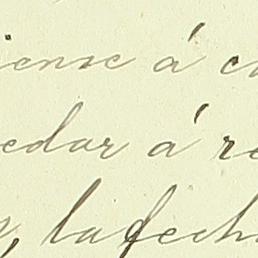 iense á c
edar á re
, la fech